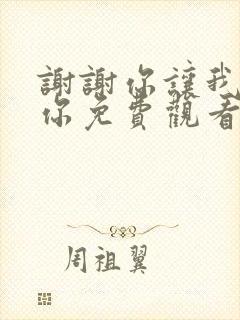 謝謝你讓我
你免費觀看
周祖翼